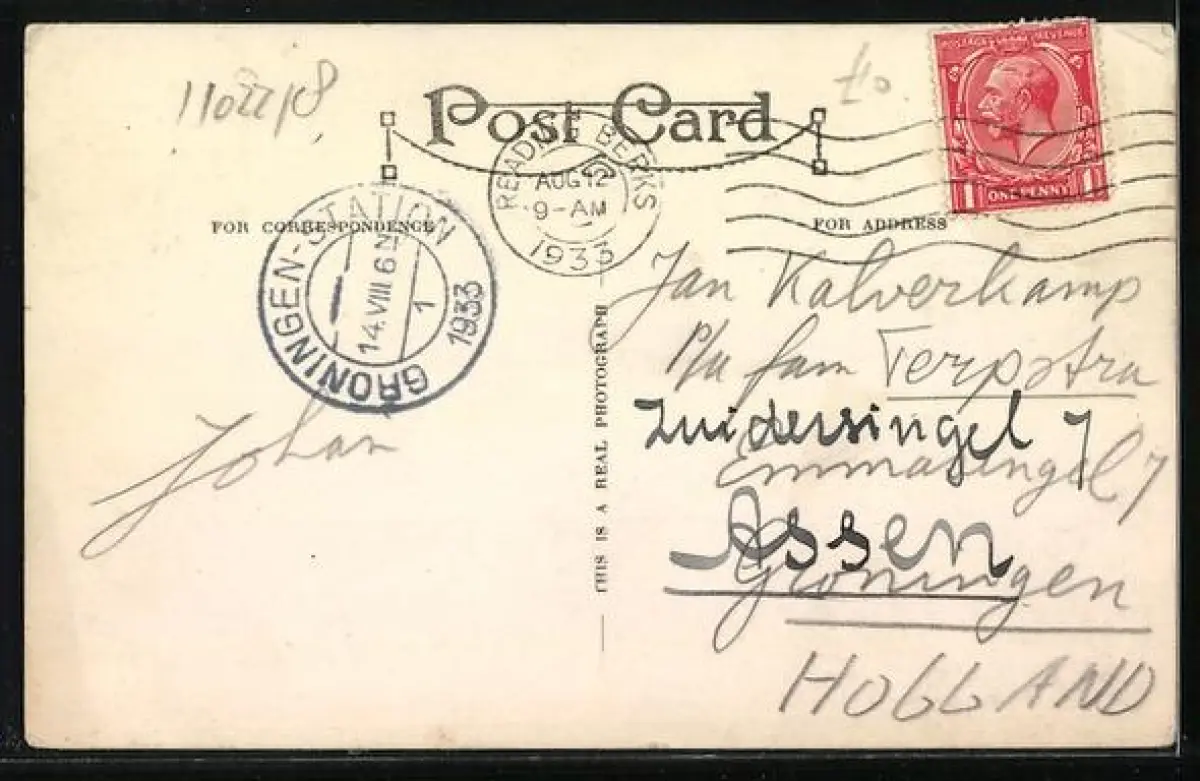 11022/8
Post Card
POSTAGE REVENUE
1 ONE PENNY 1
READING BERKS
AUG 12
9-AM
1933
FOR CORRESPONDENCE
FOR ADDRESS
GRONINGEN-STATION
14.VIII 6 N
1
1933
THIS IS A REAL PHOTOGRAPH
Johan
Jan Kalverkamp
P/a fam Terpstra
Zuidersingel 7
Emmasingel 7
Assen
Groningen
HOLLAND